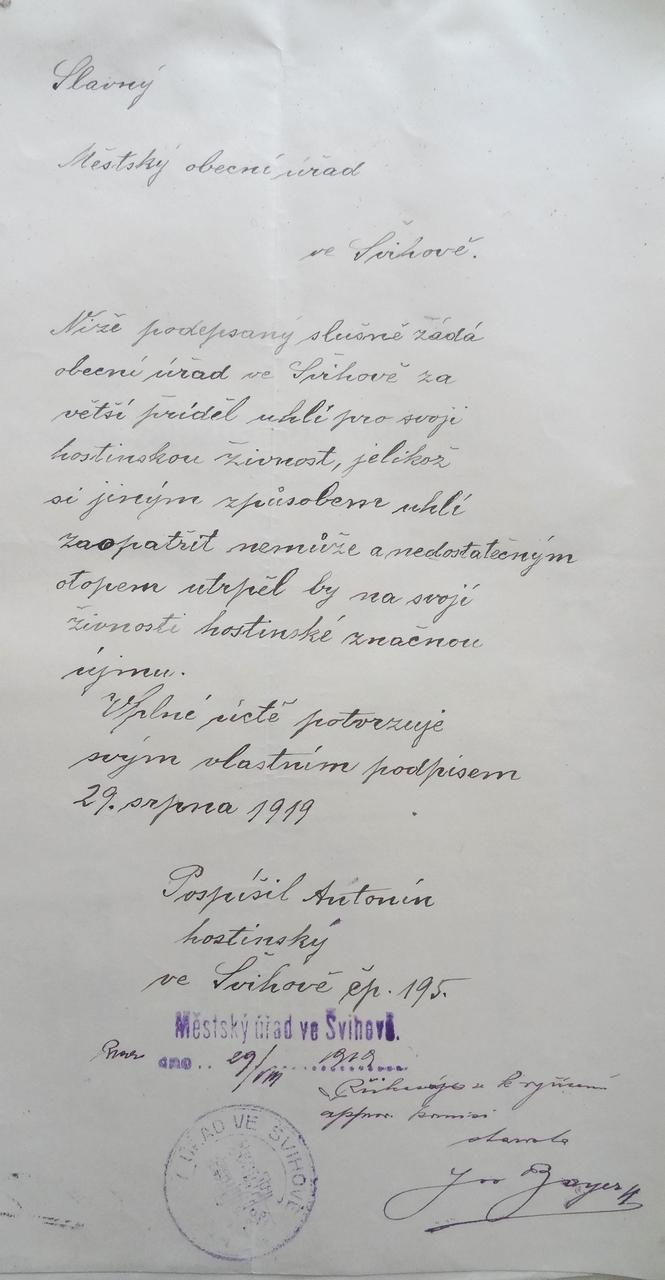 Slavný
Městský obecní úřad
ve Švihově.
Níže podepsaný slušně žádá
obecní úřad ve Švihově za
větší příděl uhlí pro svoji
hostinskou živnost, jelikož
si jiným způsobem uhlí
zaopatřit nemůže a nedostatečným
otopem utrpěl by na svojí
živnosti hostinské značnou
újmu.
Vplné úctě potvrzuje
svým vlastním podpisem
29. srpna 1919
Pospíšil Antonín
hostinský
ve Švihově čp. 195.
Městský úřad ve Švihově.
ano.. 29/VIII 1919
k vyřízení
approv. komisi
starosta
Bayer
ÚŘAD VE ŠVIHOVĚ